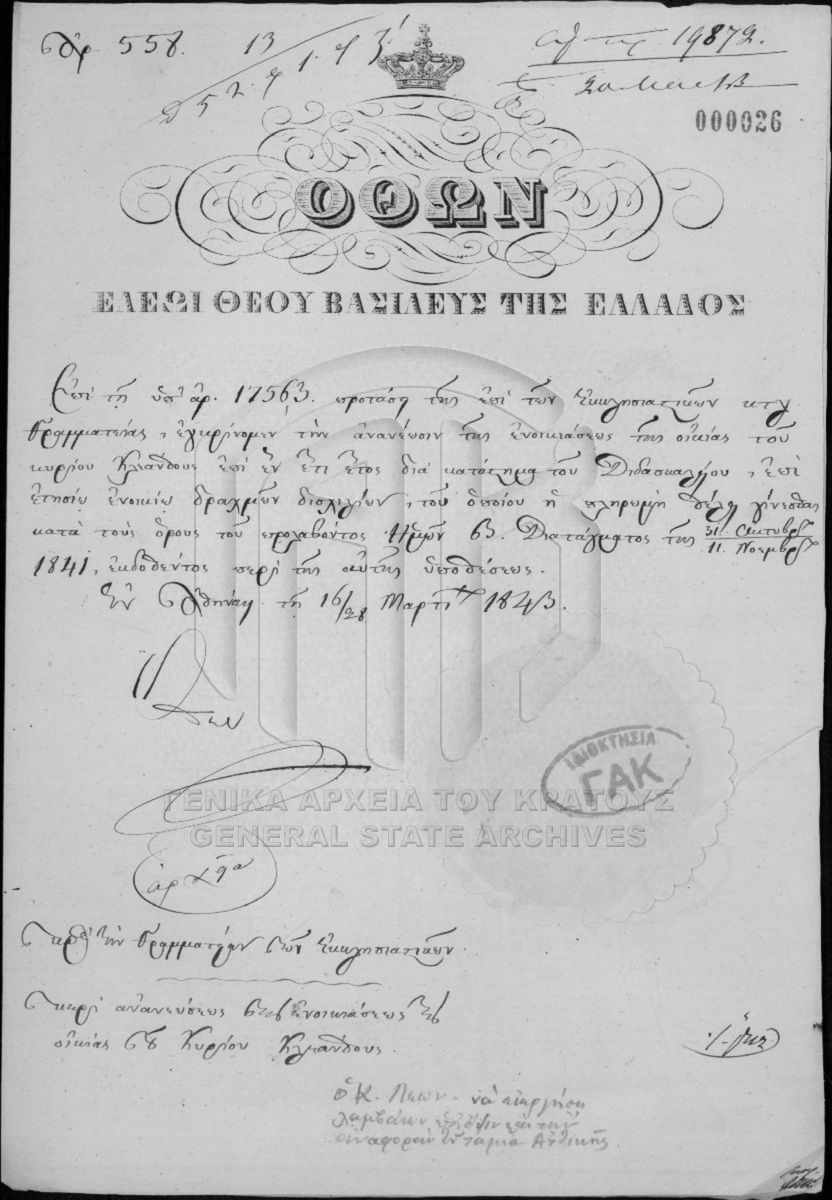 ἀρ. 558. 13
19872.
000026
ΟΘΩΝ
ΕΛΕΩΙ ΘΕΟΥ ΒΑΣΙΛΕΥΣ ΤΗΣ ΕΛΛΑΔΟΣ
Ἐπὶ τῇ ὑπ' ἀρ. 17563. προτάσῃ τῆς ἐπὶ τῶν Ἐκκλησιαστικῶν κτλ
Γραμματείας, ἐγκρίνομεν τὴν ἀνανέωσιν τῆς ἐνοικιάσεως τῆς οἰκίας τοῦ
κυρίου Κλεάνθους ἐπὶ ἓν ἔτι ἔτος διὰ κατάστημα τοῦ Διδασκαλείου, ἐπὶ
ἐτησίῳ ἐνοικίῳ δραχμῶν δισχιλίων, τοῦ ὁποίου ἡ πληρωμὴ θέλει γίνεσθαι
κατὰ τοὺς ὅρους τοῦ προλαβόντος Ἡμῶν Β. Διατάγματος τῆς 31 Ὀκτωβρ / 11. Νοεμβρ
1841, ἐκδοθέντος περὶ τῆς αὐτῆς ὑποθέσεως.
Ἐν Ἀθήναις τῇ 16/28 Μαρτίου 1843.
Ὄθων
ΙΔΙΟΚΤΗΣΙΑ
ΓΑΚ
ΓΕΝΙΚΑ ΑΡΧΕΙΑ ΤΟΥ ΚΡΑΤΟΥΣ
GENERAL STATE ARCHIVES
Πρὸς τὴν Γραμματείαν τῶν Ἐκκλησιαστικῶν.
Περὶ ἀνανεώσεως τῆς Ἐνοικιάσεως τῆς
οἰκίας τοῦ Κυρίου Κλεάνθους.
ὁ Κ.
ἀναφορὰν τοῦ ταμία Ἀττικῆς.